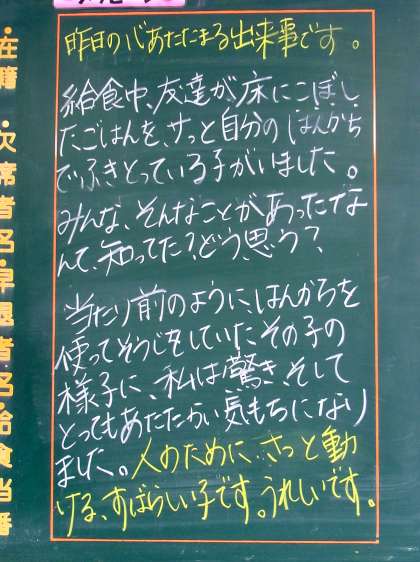 昨日の心あたたまる出来事です。
給食中、友達が床にこぼし
たごはんを、サッと自分のはんかち
でふきとっている子がいました。
みんな、そんなことがあったな
んて、知ってた?どう思う?
当たり前のように、はんかちを
使ってそうじをしていたその子の
様子に、私は驚き、そして
とってもあたたかい気もちになり
ました。人のために、さっと動
ける、すばらしい子です。うれしいです。
在籍・欠席者名・早退者名・給食当番